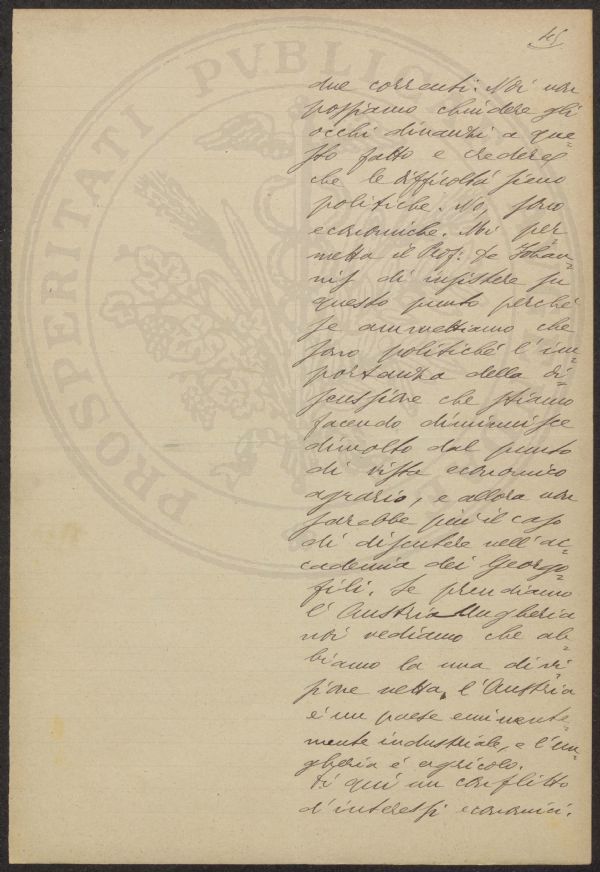 45
due correnti. Noi non
possiamo chiudere gli
occhi dinanzi a que=
sto fatto e credere
che le difficoltà sieno
politiche. No, sono
economiche. Mi per=
metta il Prof: de Johan=
nis di insistere su
questo punto perché
se ammettiamo che
sono politiche l'im=
portanza della di=
scussione che stiamo
facendo diminuisce
dimolto dal punto
di vista economico
agrario, e allora non
sarebbe più il caso
di discutere nell'ac=
cademia dei Georgo=
fili. Se prendiamo
l'Austria Ungheria
noi vediamo che ab=
biamo la una divi=
sione netta, l'Austria
é un paese eminente=
mente industriale, e l'Un=
gheria é agricolo.
Di qui un conflitto
d'interessi economici.
PROSPERITATI PVBLIC